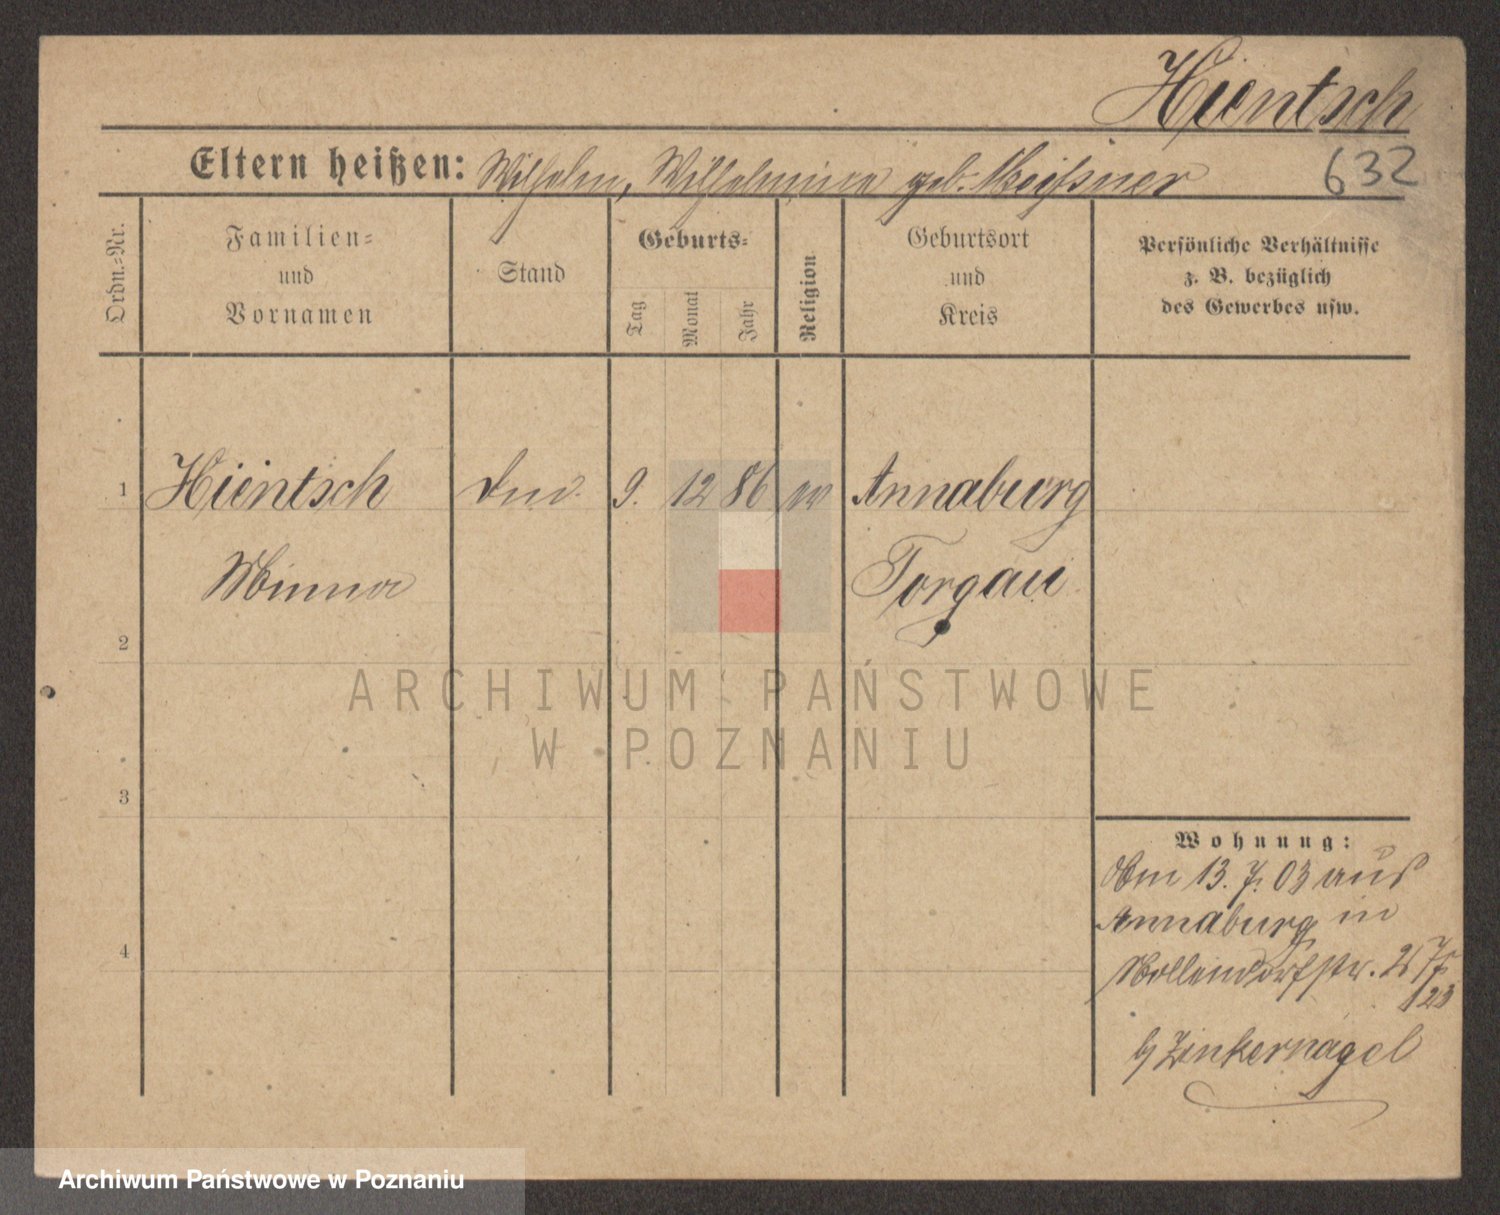 Hientsch
Eltern heißen: Wilhelm, Wilhelmine geb. Meißner
632
Ordn.-Nr.
Familien-
und
Vornamen
Stand
Geburts-
Tag
Monat
Jahr
Religion
Geburtsort
und
Kreis
Persönliche Verhältnisse
z. B. bezüglich
des Gewerbes usw.
1 Hientsch 9. 12 86 ev Annaburg
Minna Torgau
2
ARCHIWUM PAŃSTWOWE
W POZNANIU
3
Wohnung:
13. 7. 03 aus
Annaburg in
4
Zinkernagel
Archiwum Państwowe w Poznaniu